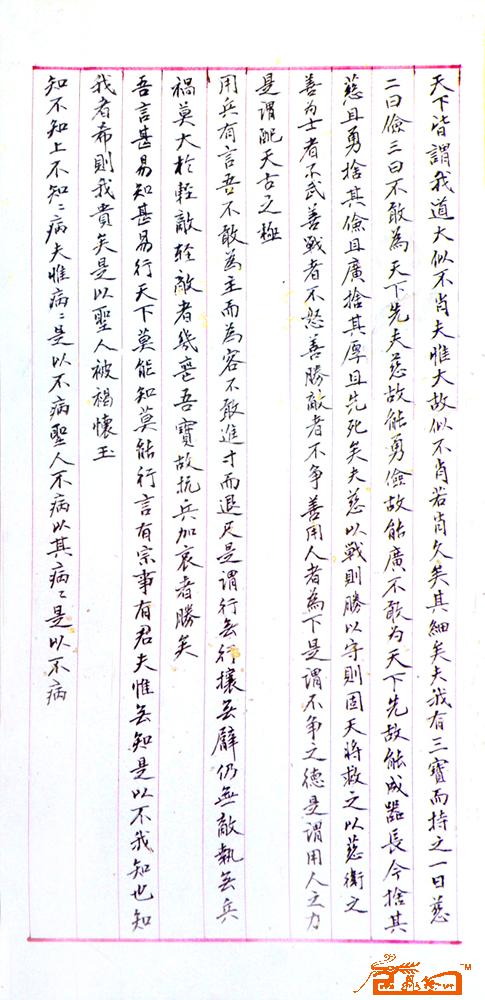 天下皆謂我道大似不肖夫惟大故似不肖若肖久矣其細矣夫我有三寶而持之一曰慈
二曰儉三曰不敢為天下先夫慈故能勇儉故能廣不敢为天下先故能成器長今捨其
慈且勇捨其儉且廣捨其厚且先死矣夫慈以戰則勝以守則固天將救之以慈衛之
善为士者不武善戰者不怒善勝敵者不争善用人者為下是謂不争之德是謂用人之力
是謂配天古之極
用兵有言吾不敢為主而為客不敢進寸而退尺是謂行无行攘无臂仍無敵執无兵
禍莫大於輕敵輕敵者幾喪吾寶故抗兵加哀者勝矣
吾言甚易知甚易行天下莫能知莫能行言有宗事有君夫惟无知是以不我知也知
我者希則我貴矣是以聖人被褐懷玉
知不知上不知〻病夫惟病〻是以不病聖人不病以其病〻是以不病